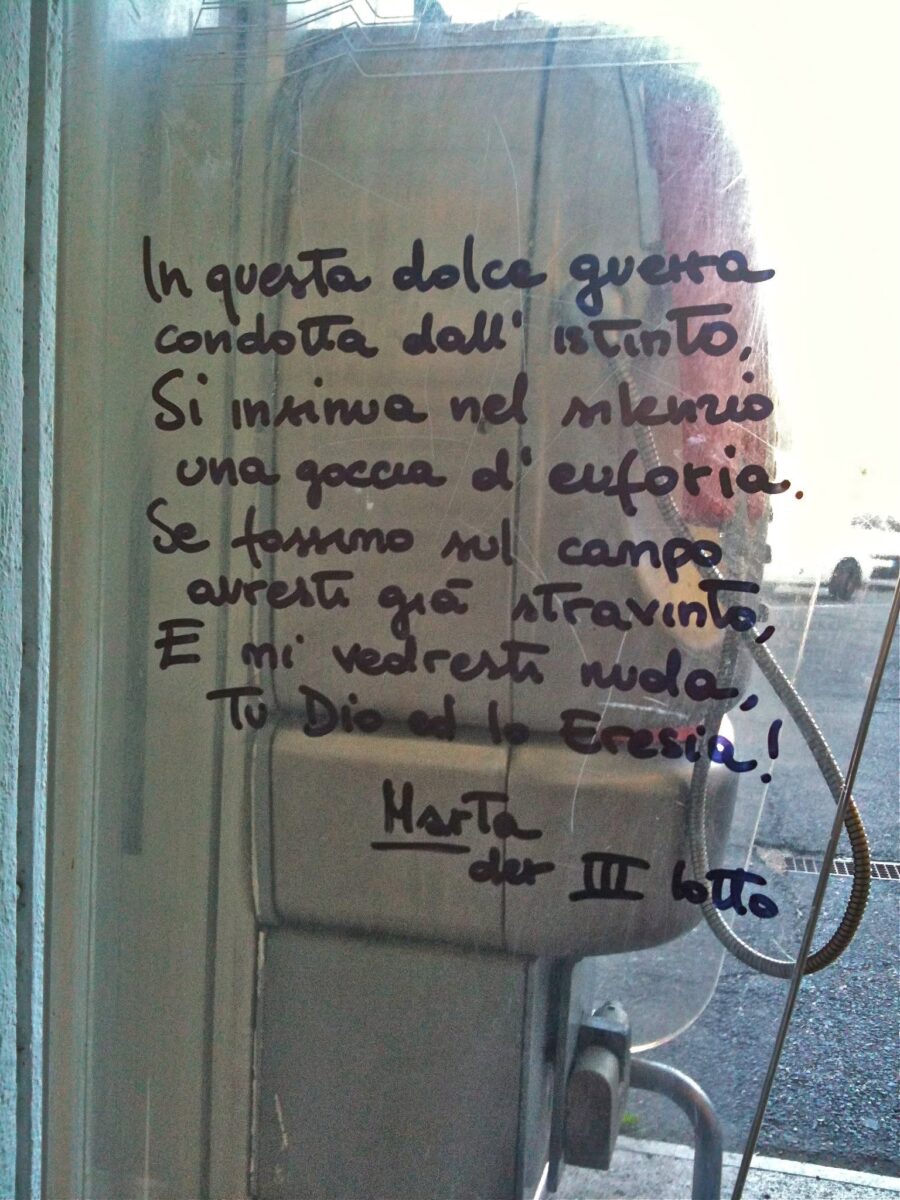 In questa dolce guerra
condotta dall' istinto,
Si insinua nel silenzio
una goccia d' euforia.
Se fossimo sul campo
avresti già stravinto,
E mi vedresti nuda,
Tu Dio ed io Eresia!
Marta
der III lotto